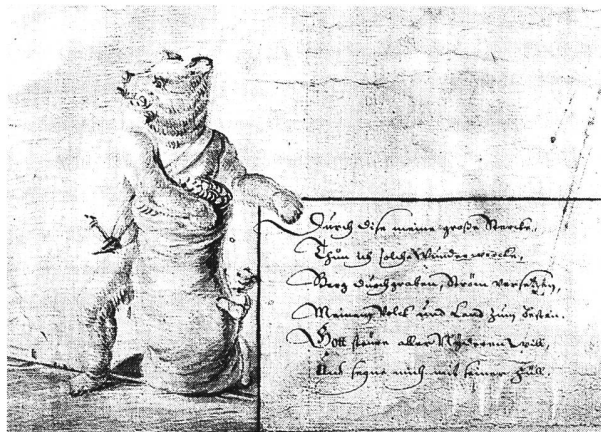 Durch dise meine große Stercke,
Thun ich solche Wunderwercke,
Berg durchgraben, Ström versetzen,
Meinem Volck und Land zum besten.
Gott steure aller Mißgunst will,
Und segne mich mit seiner Hüll.